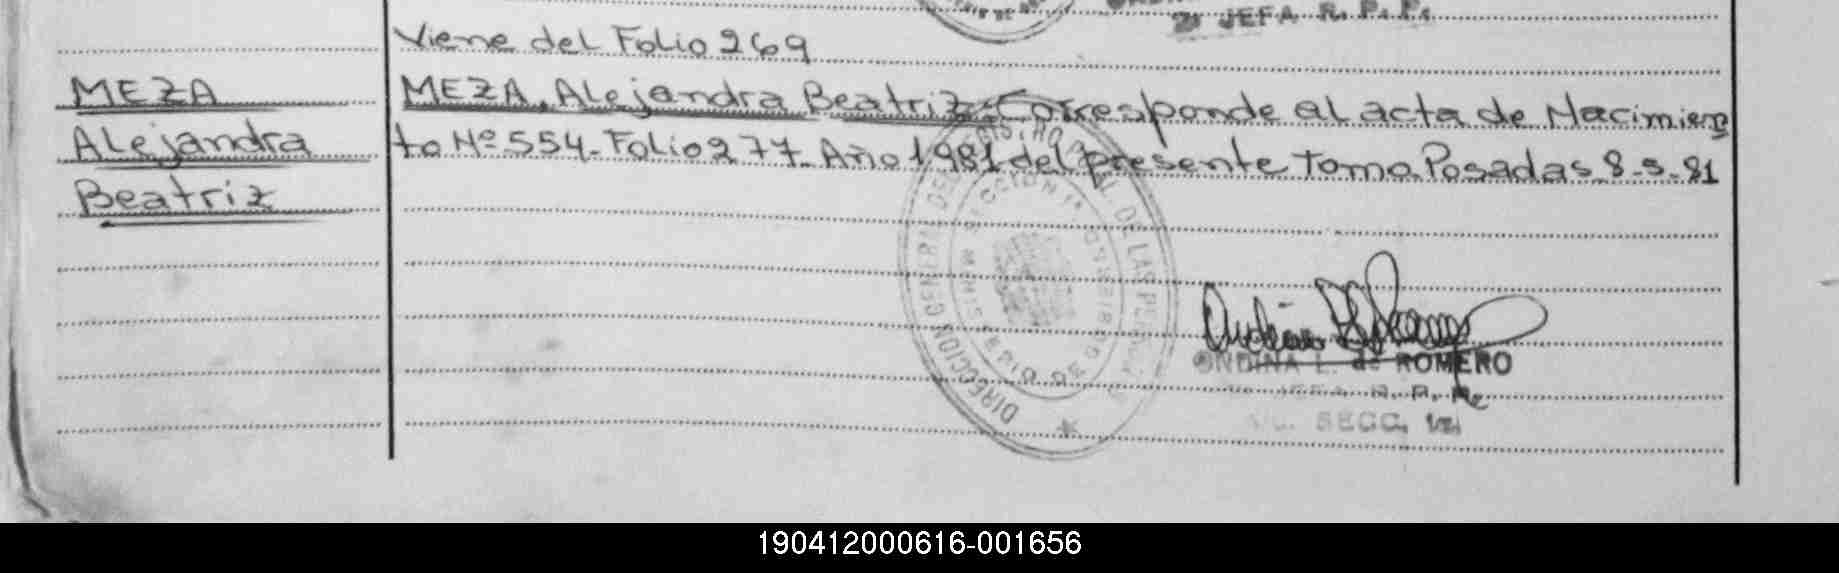 2ª JEFA R. P. P.
Viene del Folio 269
MEZA
Alejandra
Beatriz
MEZA, Alejandra Beatriz - Corresponde al acta de Nacimien
to Nº 554 - Folio 277 - Año 1981 del presente Tomo. Posadas 8-5-81
DIRECCION GENERAL DEL REGISTRO DE LAS PERSONAS
MINISTERIO DE GOBIERNO
ONDINA L. de ROMERO
JEFA R. P. P.
SECC. 1ª
190412000616-001656